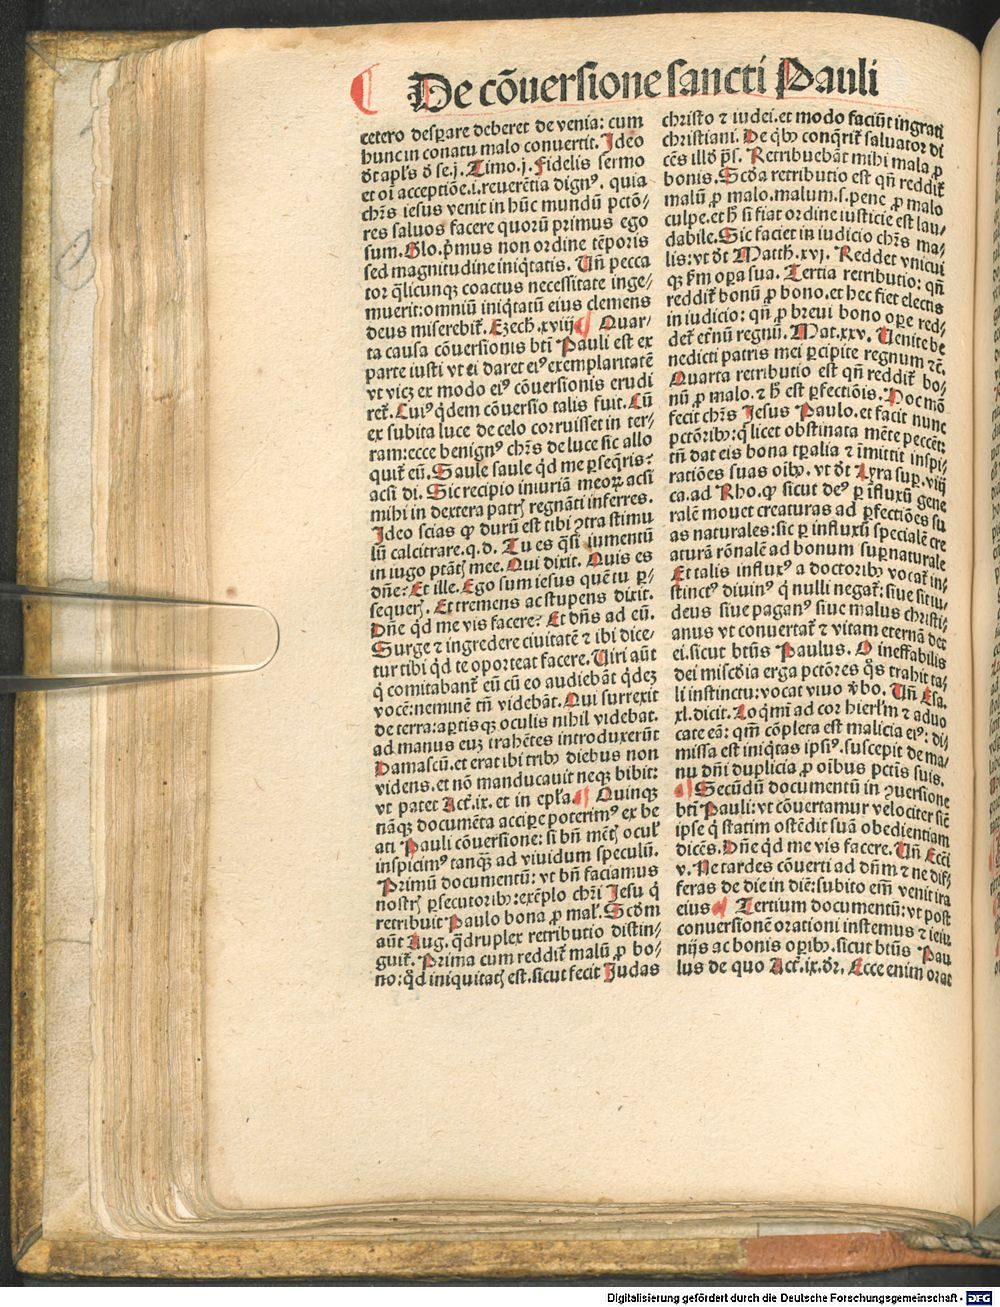 De cõuersione sancti Pauli
cetero desperare deberet de venia: cum
hunc in conatu malo conuertit. Ideo
dt apl's d se.j. Timo.j. Fidelis sermo
et oi acceptiõe.i.reuerẽtia dignꝰ. quia
chr̃s iesus venit in hũc mundũ pctõ⸗
res saluos facere quorũ primus ego
sum. Glo. p̃mus non ordine tẽporis
sed magnitudine iniq̃tatis. Uñ pecca
tor q̃licunqꝫ coactus necessitate inge⸗
muerit: omniũ iniq̃tatũ eius clemens
deus miserebit᷑. Ezech.xviij ¶ Quar⸗
ta causa cõuersionis bt̃i Pauli est ex
parte iusti vt ei daret eiꝰ exemplaritatẽ
vt vicꝫ ex modo eiꝰ cõuersionis erudi
ret᷑. Cuiꝰ q̃dem cõuersio talis fuit. Cũ
ex subita luce de celo corruisset in ter⸗
ram: ecce benignꝰ chr̃s de luce sic allo
quit᷑ eũ. Saule saule q̃d me ꝑseq̃ris?
acsi di. Sic recipio iniuriã meoꝝ acsi
mihi in dextera patrꝭ regnãti inferres.
Ideo scias ꝙ durũ est tibi ꝯtra stimu
lũ calcitrare.q.d. Tu es q̃si iumentũ
in iugo ptãtꝭ mee. Qui dixit. Quis es
dñe? Et ille. Ego sum iesus quẽ tu ꝑ⸗
sequerꝭ. Et tremens ac stupens dixit.
Dñe q̃d me vis facere? Et dñs ad eũ.
Surge ⁊ ingredere ciuitatẽ ⁊ ibi dice⸗
tur tibi q̃d te oporteat facere. Uiri aũt
q̃ comitabant᷑ eũ cũ eo audiebãt q̃dcꝫ
vocẽ: neminẽ tñ videbãt. Qui surrexit
de terra: aꝑtisqꝫ oculis nihil videbat.
ad manus euꝫ trahẽtes introduxerũt
Damascũ. et erat ibi tribꝰ diebus non
videns. et nõ manducauit neqꝫ bibit:
vt patet Act᷑.ix. et in epl'a ¶ Quinqꝫ
nãqꝫ documẽta acciꝑe poterimꝰ ex be
ati Pauli cõuersione: si bñ mẽtꝭ ocul'
inspicimꝰ tanqꝫ ad viuidum speculũ.
Primũ documentũ: vt bñ faciamus
nostrꝭ ꝑsecutoribꝰ: exẽplo chr̃i Jesu q̃
retribuit Paulo bona ꝓ mal'. Scd̃m
aũt Aug. q̃druplex retributio distin⸗
guit᷑. Prima cum reddit᷑ malũ ꝓ bo⸗
no: q̃d iniquitatꝭ est. sicut fecit Judas
christo ⁊ iudei. et modo faciũt ingrati
christiani. De qbꝰ conq̃rit᷑ saluator di
cẽs illd̃ ps̃. Retribuebãt mihi mala ꝓ
bonis. Scd̃a retributio est qñ reddit᷑
malũ ꝓ malo. malum.s. pene ꝓ malo
culpe. et h̃ si fiat ordine iusticie est lau⸗
dabile. Sic faciet in iudicio chr̃s ma⸗
lis: vt dt Matth.xvj. Reddet vnicui
qꝫ ẜm oꝑa sua. Tertia retributio: qñ
reddit᷑ bonũ ꝓ bono. et hec fiet electis
in iudicio: qñ ꝓ breui bono oꝑe red⸗
det᷑ et̃nũ regnũ. Mat.xxv. Uenite be
nedicti patris mei ꝑcipite regnum ⁊c̃.
Quarta retributio est qñ reddit᷑ bo⸗
nũ ꝓ malo. ⁊ h̃ est ꝑfectiõis. Hoc mõ
fecit chr̃s Jesus Paulo. et facit nunc
pctõribꝰ: q̃ licet obstinata mẽte peccẽt:
tñ dat eis bona tꝑalia ⁊ ĩmittit inspi⸗
ratiões suas oibꝰ. vt dt Lyra suꝑ. viij
ca. ad Rho. ꝙ sicut deꝰ ꝑ ĩfluxũ gene
ralẽ mouet creaturas ad ꝑfectiões su
as naturales: sic ꝑ influxũ specialẽ cre
aturã rõnalẽ ad bonum suꝑnaturale
Et talis influxꝰ a doctoribꝰ vocat᷑ in⸗
stinctꝰ diuinꝰ q̃ nulli negat᷑: siue sit iu⸗
deus siue paganꝰ siue malus christi⸗
anus vt conuertat᷑ ⁊ vitam eternã det
ei. sicut bt̃us Paulus. O ineffabilis
dei misc̃dia erga pctõres q̃s trahit ta⸗
li instinctu: vocat viuo v̾bo. Uñ Esa.
xl. dicit. Loq̃mĩ ad cor hierl'm ⁊ aduo
cate eã: qm̃ cõpleta est malicia eiꝰ: di⸗
missa est iniq̃tas ipsiꝰ. suscepit de ma⸗
nu dñi duplicia ꝓ oĩbus pctĩs suis.
¶ Secũdũ documentũ in ꝯuersione
bt̃i Pauli: vt cõuertamur velociter sic̃
ipse q̃ statim ostẽdit suã obedientiam
dicẽs. Dñe q̃d me vis facere. Uñ Ecc̃i
v. Ne tardes cõuerti ad dñm ⁊ ne dif⸗
feras de die in diẽ: subito em̃ venit ira
eius ¶ Tertium documentũ: vt post
conuersionẽ orationi instemus ⁊ ieiu
nijs ac bonis oꝑibꝰ. sicut bt̃us Pau
lus de quo Act᷑.ix. dr̃. Ecce enim orat
Digitalisierung gefördert durch die Deutsche Forschungsgemeinschaft - DFG